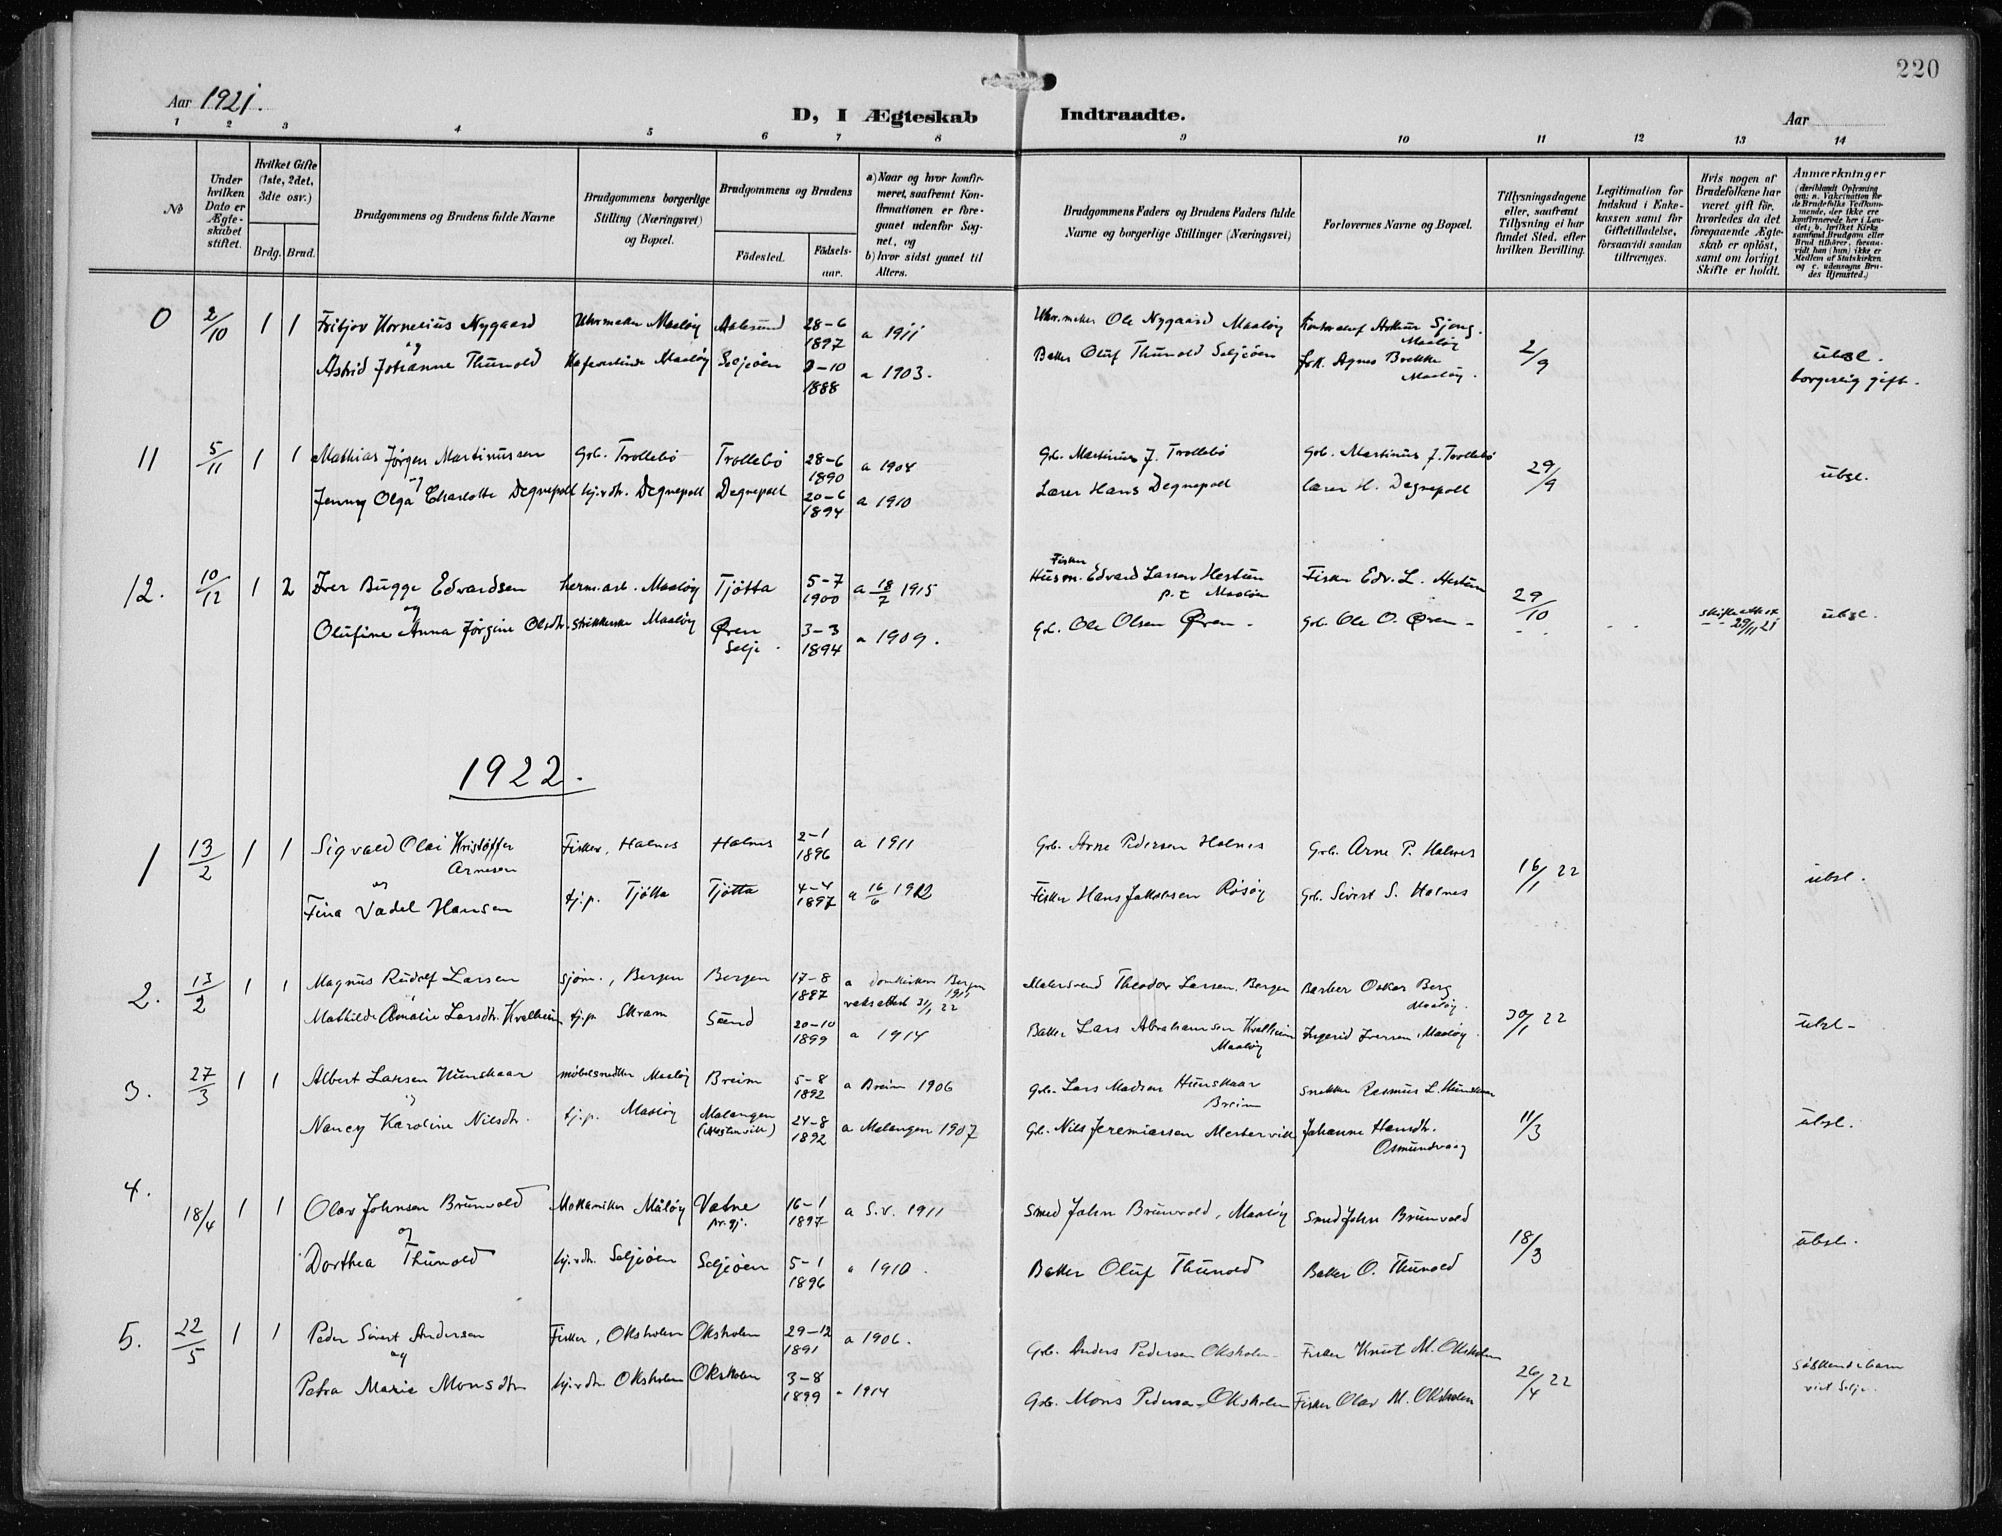 220
Aar 1921.
D, I Ægteskab Indtraadte.
Aar
1 2 3 4 5 6 7 8 9 10 11 12 13 14
No
Under hvilken Dato er Ægteskabet stiftet.
Hvilket Gifte (1ste, 2det, 3die osv.)
Brdg. Brud.
Brudgommens og Brudens fulde Navne
Brudgommens borgerlige Stilling (Næringsvei) og Bopæl.
Brudgommens og Brudens
Födested. Födselsaar.
a) Naar og hvor konfirmeret, saafremt Konfirmationen er foregaaet udenfor Sognet, og
b) hvor sidst gaaet til Alters.
Brudgommens Faders og Brudens Faders fulde Navne og borgerlige Stillinger (Næringsvei)
Forlovernes Navne og Bopæl.
Tillysningsdagene eller, saafremt Tillysning ei har fundet Sted, efter hvilken Bevilling.
Legitimation for Indskud i Enkekassen samt for Giftetilladelse, forsaavidt saadan tiltrænges.
Hvis nogen af Brudefolkene har været gift för, hvorledes da det foregaaende Ægteskab er oplöst, samt om lovligt Skifte er holdt.
Anmærkninger
0 2/10 1 1 Fritjov Kornelius Nygaard Uhrmaker Maaløy Aalesund 28-6 1897 a 1911 Uhrmaker Ole Nygaard Maaløy Arthur Sjong. Maaløy 2/9 ubsl.
og
Astrid Johanne Thunold Maaløy Seljeöen 1888 a 1903. Baker Oluf Thunold Seljeöen frk. Agnes Brekke Maaløy. borgerlig gift.
11 5/11 1 1 Mathias Jörgen Martinussen Grb. Trollebö Trollebö 28-6 1890 a 1904 Gb. Martinus J. Trollebö Grb. Martinus J. Trollebö 29/9 ubsl.
og
Jenny Olga Charlotte Degnepoll hj.v.dtr. Degnepoll Degnepoll 20-6 1894 a 1910 Lærer Hans Degnepoll lærer H. Degnepoll
12. 10/12 1 2 Iver Bugge Edvardsen herm.arb. Maaløy Tjötta 5-7 1900 a 18/7 1915 Fisker Husm. Edvard Larsen Hestun p.t Maaløy Fisker Edv. L. Hestun 29/10 skifteattest 29/11 21 ubsl.
og
Olufine Anna Jörgine Olsdtr. Maaløy Øren Selje. 3-3 1894 a 1909. Gb. Ole Olsen Øren - Grb. Ole O. Øren -
1922.
1 13/2 1 1 Sigvald Olai Kristoffer Arnesen Fisker, Halnes Halnes 2-1 1896 a 1911 Grb. Arne Pedersen Halnes Grb. Arne P. Halnes 16/1 22 ubsl.
og
Fina Vadel Hansen tj.p. Tjötta Tjötta 4-4 1897 a 16/6 1912 Fisker Hans Jakobsen Røsöy Grb. Sivert S. Halnes
2. 13/2 1 1 Magnus Rudolf Larsen Sjöm., Bergen Bergen 17-8 1887 a Domkirken Bergen 1911 vaks.attest 31/1 22 Malersvend Theodor Larsen, Bergen Barber Oskar Berg Maaløy. 30/1 22 ubsl-
Mathilde Amalie Larsdtr. Kvalheim tj.p. Skram Sand 20-10 1899 a 1914 Baker Lars Abrahamsen Kvalheim Maaløy Ingerid Iversen, Maaløy.
3. 27/3 1 1 Albert Larsen Hunskaar möbelsnedker Maaløy Breim 5-8 1892 a Breim 1906 Grb. Lars Madsen Hunskaar Breim snekker Rasmus L. Hunskaar 11/3 ubsl.
og
Nancy Karoline Nilsdtr. tj.p. Maaløy Malangen (Mestervik) 24-8 1892 a Malangen 1907 Gb. Nils Jeremiassen Mestervik Johanne Hansdtr. Osmundvaag
4. 18/4 1 1 Olav Johnsen Brunvold Mekaniker Måløy Vatne pr.gj. 16-1 1897 a S.V. 1911 Smed John Brunvold, Maaløy Smed John Brunvold 18/3 ubsl.
og
Dorthea Thunold hj.v.dtr. Seljeöen Seljeöen 5-1 1896 a 1910. Baker Oluf Thunold Baker O. Thunold
5. 22/5 1 1 Peder Sivert Andersen Fisker, Oksholen Oksholen 29-12 1891 a 1906. Grb. Anders Pedersen Oksholen- Fisker Knut M. Oksholen 26/4 22 söskendebarn viet Selje.
og
Petra Marie Monsdtr hj.v.dtr Oksholen Oksholen 3-8 1899 - 1914 Grb. Mons Pedersen Oksholen Fisker Olav M. Oksholen